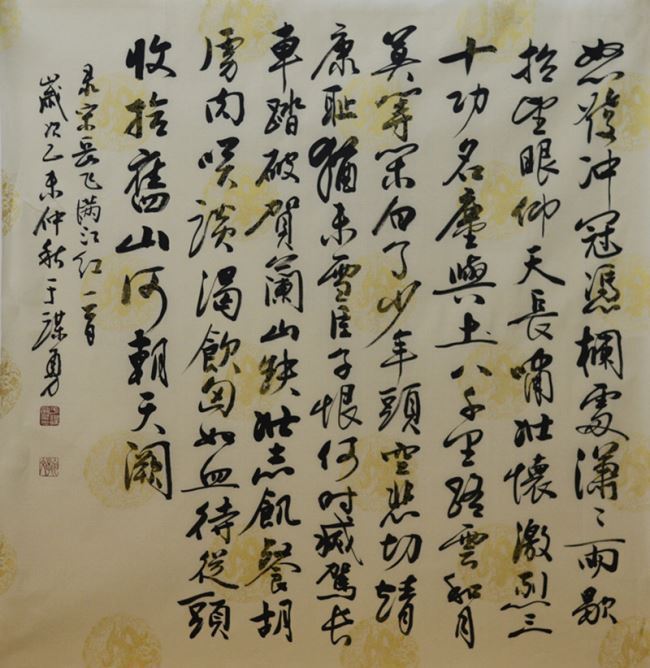 怒發冲冠憑欄處潇〻雨歇
抬望眼仰天長嘯壯懷激烈三
十功名塵與土八千里路雲和月
莫等閑白了少年頭空悲切靖
康耻猶未雪臣子恨何时滅駕长
車踏破賀蘭山缺壯志飢餐胡
虜肉笑談渴飲匈奴血待從頭
收拾舊山河朝天闕
录宋岳飞满江红一首
歲次乙未仲秋于謀勇